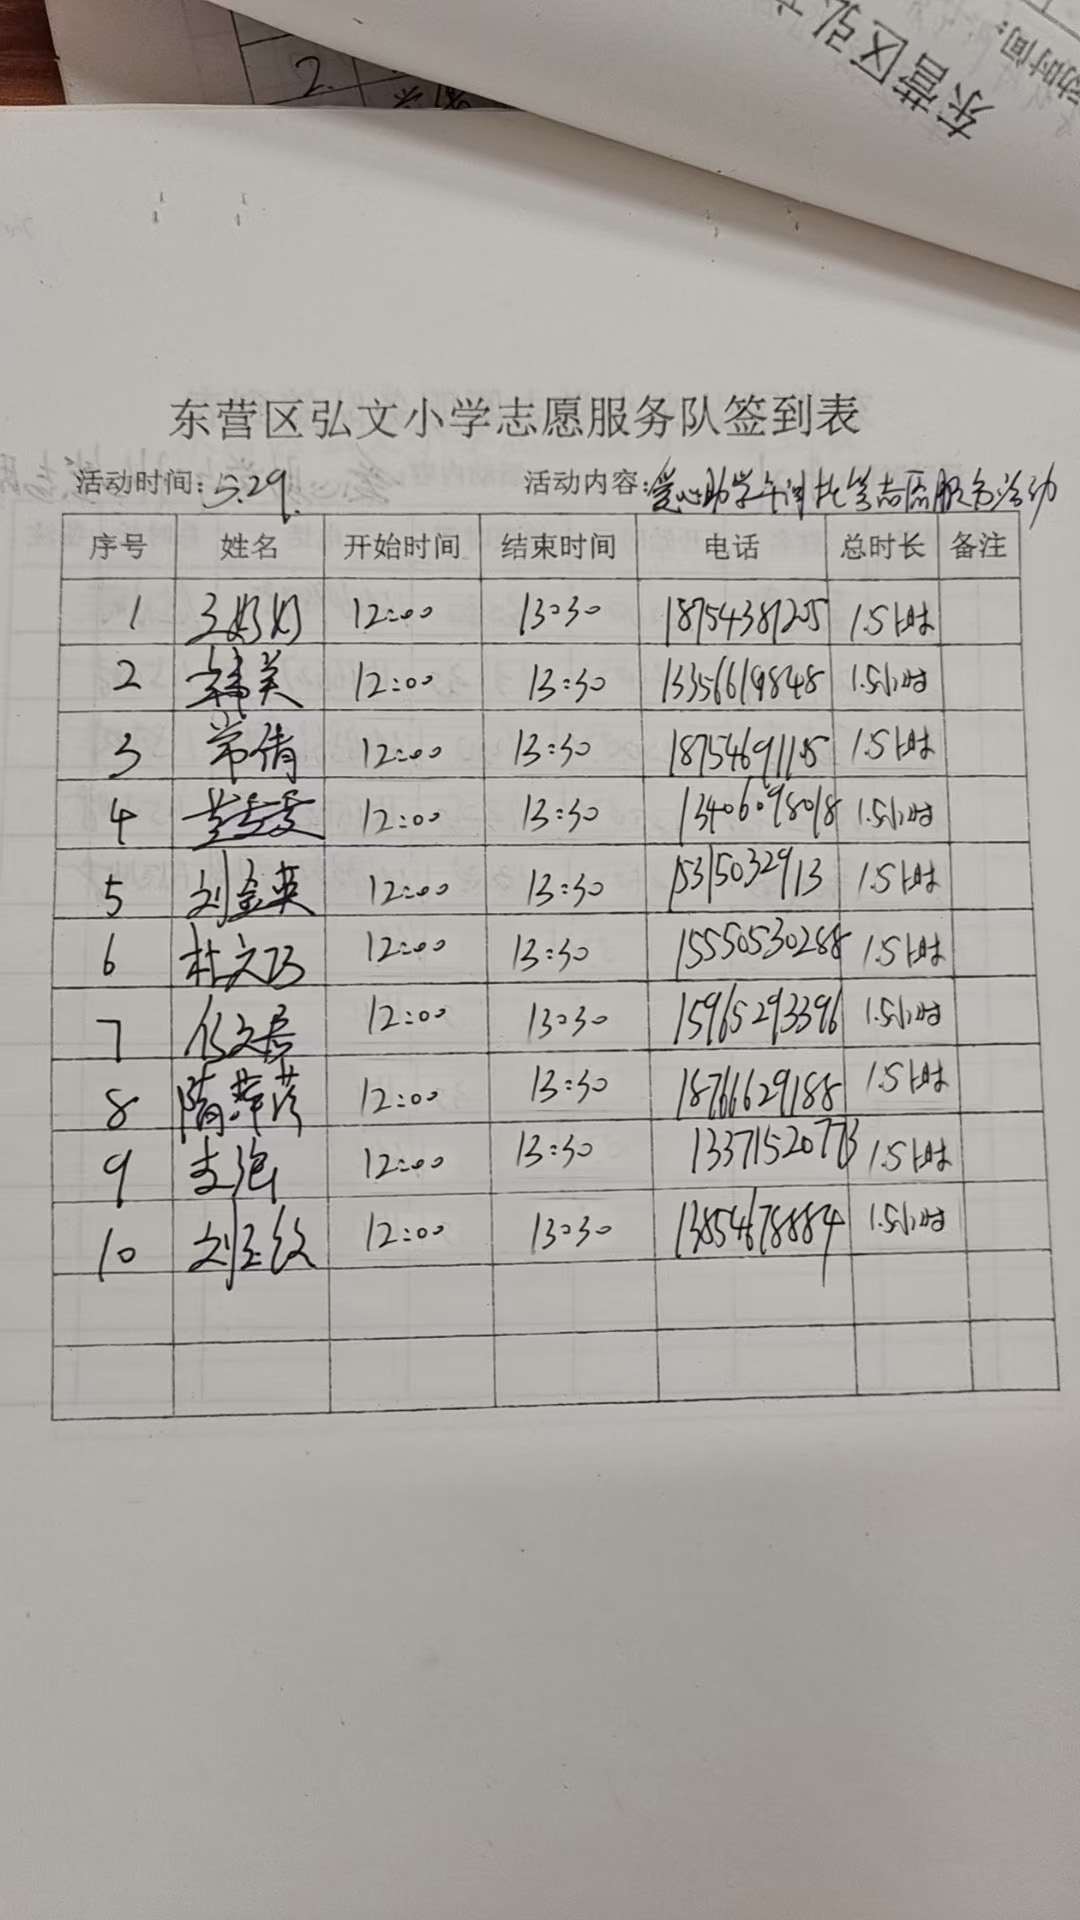 2.
东营区弘
动时间:
东营区弘文小学志愿服务队签到表
活动时间: 5.29. 活动内容: 爱心助学午间托管志愿服务活动
序号 姓名 开始时间 结束时间 电话 总时长 备注
1 王婷婷 12:00 13:30 18754387205 1.5小时
2 韩美 12:00 13:30 13356619848 1.5小时
3 常倩 12:00 13:30 18754691105 1.5小时
4 12:00 13:30 13406098018 1.5小时
5 刘金英 12:00 13:30 15315032913 1.5小时
6 杜文乃 12:00 13:30 15550530288 1.5小时
7 12:00 13:30 15965293396 1.5小时
8 隋萍萍 12:00 13:30 18766629188 1.5小时
9 12:00 13:30 13371520773 1.5小时
10 12:00 13:30 13854678884 1.5小时